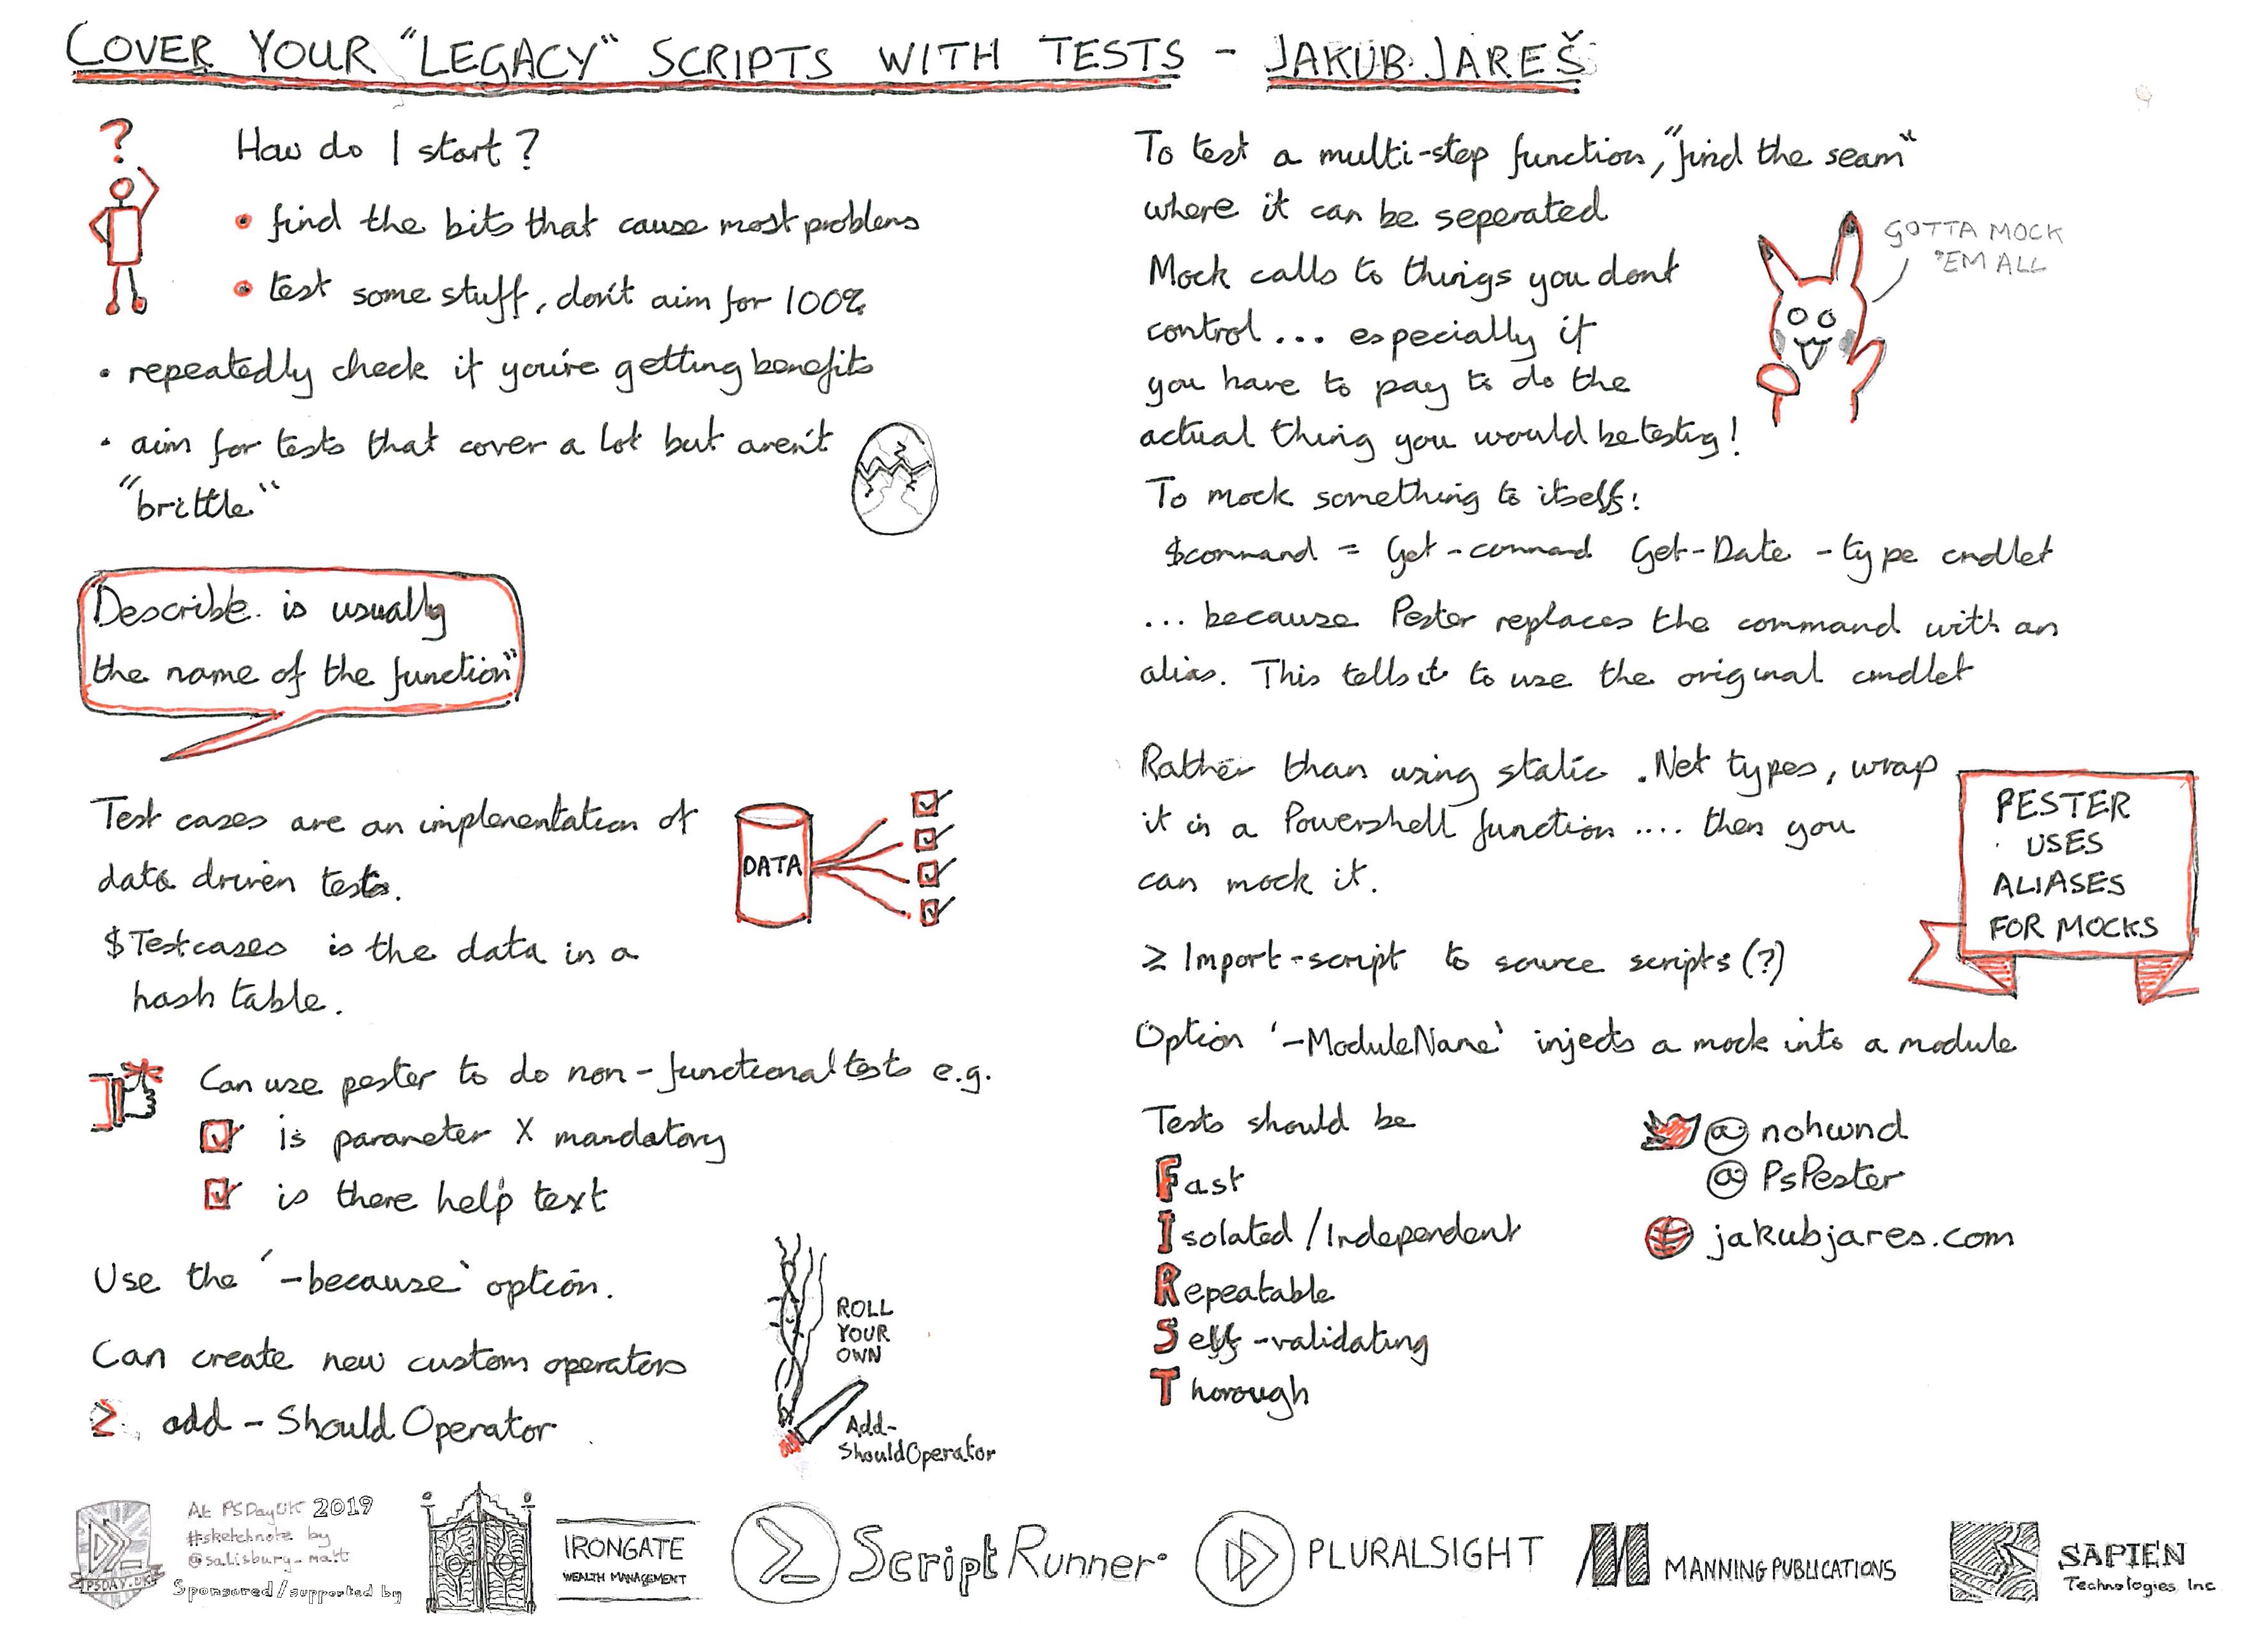 COVER YOUR "LEGACY" SCRIPTS WITH TESTS - JAKUB JAREŠ
?
How do I start?
• find the bits that cause most problems
• test some stuff, don't aim for 100%
• repeatedly check if you're getting benefits
• aim for tests that cover a lot but aren't
"brittle"
Describe is usually
the name of the function"
Test cases are an implementation of
data driven tests.
DATA
$Testcases is the data in a
hash table.
Can use pester to do non-functional tests e.g.
is parameter X mandatory
is there help text
Use the '-because' option.
Can create new custom operators
add-ShouldOperator
ROLL
YOUR
OWN
Add-
ShouldOperator
To test a multi-step function, "find the seam"
where it can be seperated
Mock calls to things you dont
control... especially if
you have to pay to do the
actual thing you would be testig!
GOTTA MOCK
'EM ALL
To mock something to itself:
$command = Get-command Get-Date -type cmdlet
... because Pester replaces the command with an
alias. This tells it to use the original cmdlet
Rather than using static .Net types, wrap
it in a Powershell function .... then you
can mock it.
PESTER
USES
ALIASES
FOR MOCKS
≥ Import-script to source scripts (?)
Option '-ModuleName' injects a mock into a module
Tests should be
Fast
Isolated / Independent
Repeatable
Self-validating
Thorough
@nohwnd
@PsPester
jakubjares.com
PSDAY.UK
At PSDayUK 2019
#sketchnote by
@salisbury_matt
Sponsored/supported by
IRONGATE
WEALTH MANAGEMENT
ScriptRunner
PLURALSIGHT
MANNING PUBLICATIONS
SAPIEN
Technologies, Inc